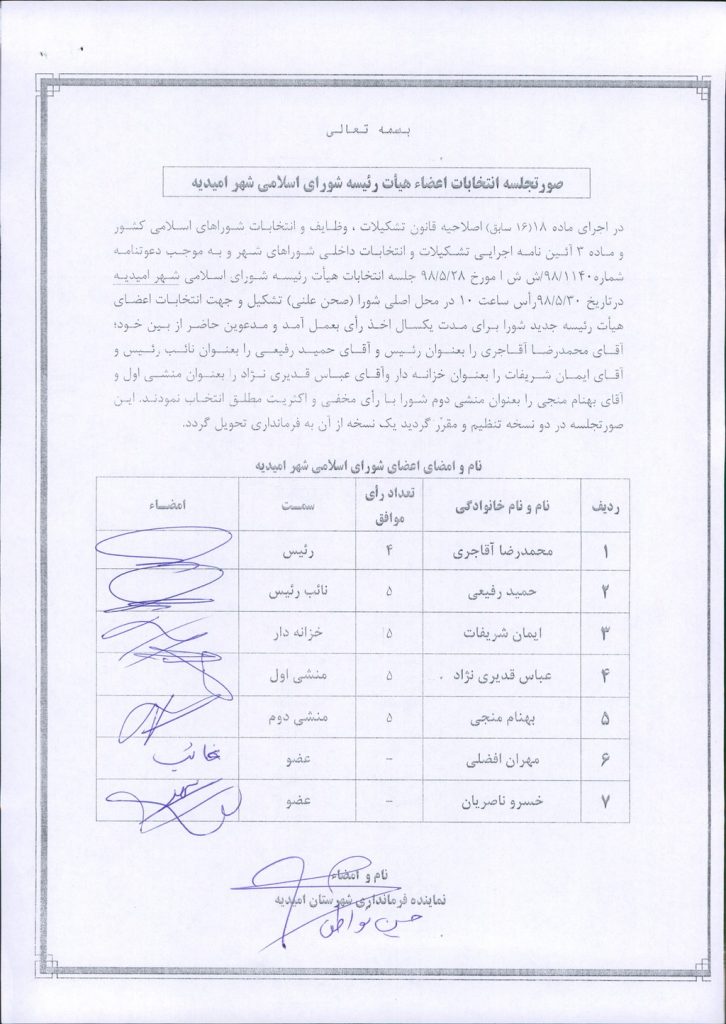 بسمه تعالی
صورتجلسه انتخابات اعضاء هیأت رئیسه شورای اسلامی شهر امیدیه
در اجرای ماده ۱۸(۱۶ سابق) اصلاحیه قانون تشکیلات ، وظایف و انتخابات شوراهای اسلامی کشور
و ماده ۳ آئین نامه اجرایی تشکیلات و انتخابات داخلی شوراهای شهر و به موجب دعوتنامه
شماره۹۸/۱۱۴۰/ش ش ا مورخ ۹۸/۵/۲۸ جلسه انتخابات هیأت رئیسه شورای اسلامی شهر امیدیه
درتاریخ ۹۸/۵/۳۰رأس ساعت ۱۰ در محل اصلی شورا (صحن علنی) تشکیل و جهت انتخابات اعضای
هیأت رئیسه جدید شورا برای مدت یکسال اخذ رأی بعمل آمد و مدعوین حاضر از بین خود؛
آقای محمدرضا آقاجری را بعنوان رئیس و آقای حمید رفیعی را بعنوان نائب رئیس و
آقای ایمان شریفات را بعنوان خزانه دار وآقای عباس قدیری نژاد را بعنوان منشی اول و
آقای بهنام منجی را بعنوان منشی دوم شورا با رأی مخفی و اکثریت مطلق انتخاب نمودند. این
صورتجلسه در دو نسخه تنظیم و مقرّر گردید یک نسخه از آن به فرمانداری تحویل گردد.
نام و امضای اعضای شورای اسلامی شهر امیدیه
ردیف نام و نام خانوادگی تعداد رأی موافق سمت امضاء
۱ محمدرضا آقاجری ۴ رئیس
۲ حمید رفیعی ۵ نائب رئیس
۳ ایمان شریفات ۵ خزانه دار
۴ عباس قدیری نژاد . ۵ منشی اول
۵ بهنام منجی ۵ منشی دوم
۶ مهران افضلی - عضو غائب
۷ خسرو ناصریان - عضو
نام و امضاء
نماینده فرمانداری شهرستان امیدیه
حسین